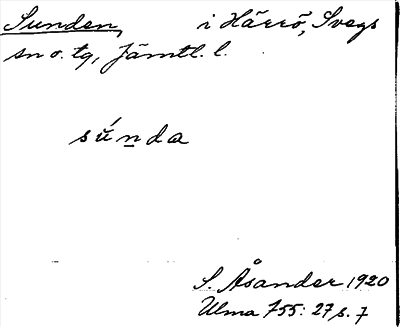 Sunden, i Härrö, Svegs
sn o. tg, Jämtl. l.
súnda
S Åsander 1920
Ulma 755: 27 s. 7